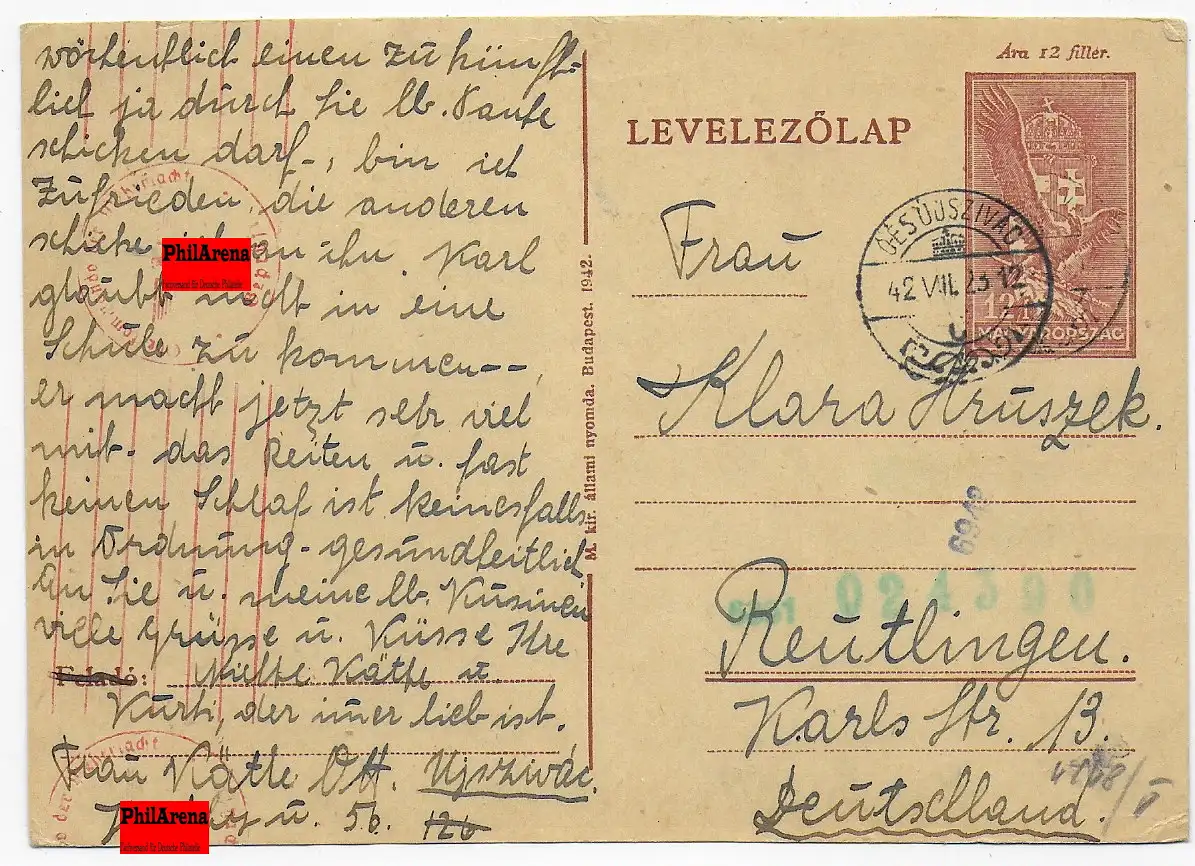 wöchentlich einen zu künft-
lich ja durch Sie lb. Tante
schicken darf-, bin ich
zufrieden, die anderen
schicke ich an ihn. Karl
glaubt nicht in eine
Schule zu kommen--,
er macht jetzt sehr viel
mit- das Reiten u. fast
keinen Schlaf ist keinesfalls
in Ordnung- gesundheitlich
An Sie u. meine lb. Kusinen
viele Grüsse u. Küsse Ihre
Feladó: Käthe u.
Kurt, der imer lieb ist.
Frau Käthe Ott. Ujszivác.
u. 56. 126
PhilArena
PhilArena
M. kir. állami nyomda. Budapest. 1942.
Ára 12 fillér.
LEVELEZŐLAP
12f
MAGYARORSZÁG
42 VIII. 23 12
Frau
Klara Hruszek.
69/8
024390
Reutlingen.
Karls Str. 13.
Deutschland.